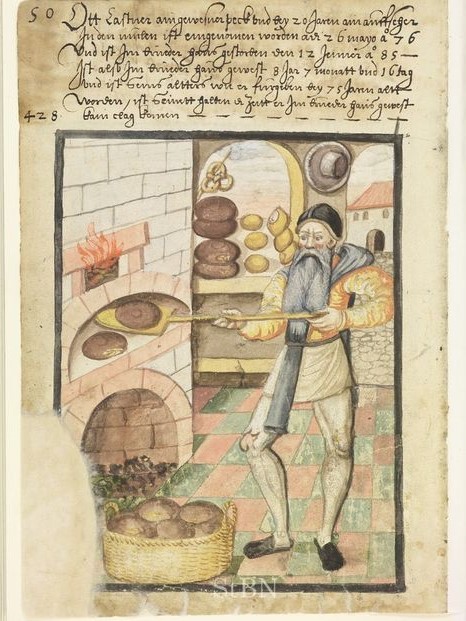 50 Ott Lastner ain gewesner peck und bey 20 Jaren ain auffseher
In den mülen ist eingenomen worden adi 26 mayo a° 76
Und ist Im brüder haus gestorben den 12 Junior a° 85
Ist also Im brüder haus gewest 8 Jar 7 monatt und 16 tag
und ist seins alters wie er furgeben bey 75 Jaren alt
worden, ist seint halten die Zeit er Im brüder haus gewest
428 kain clag komen
StBN